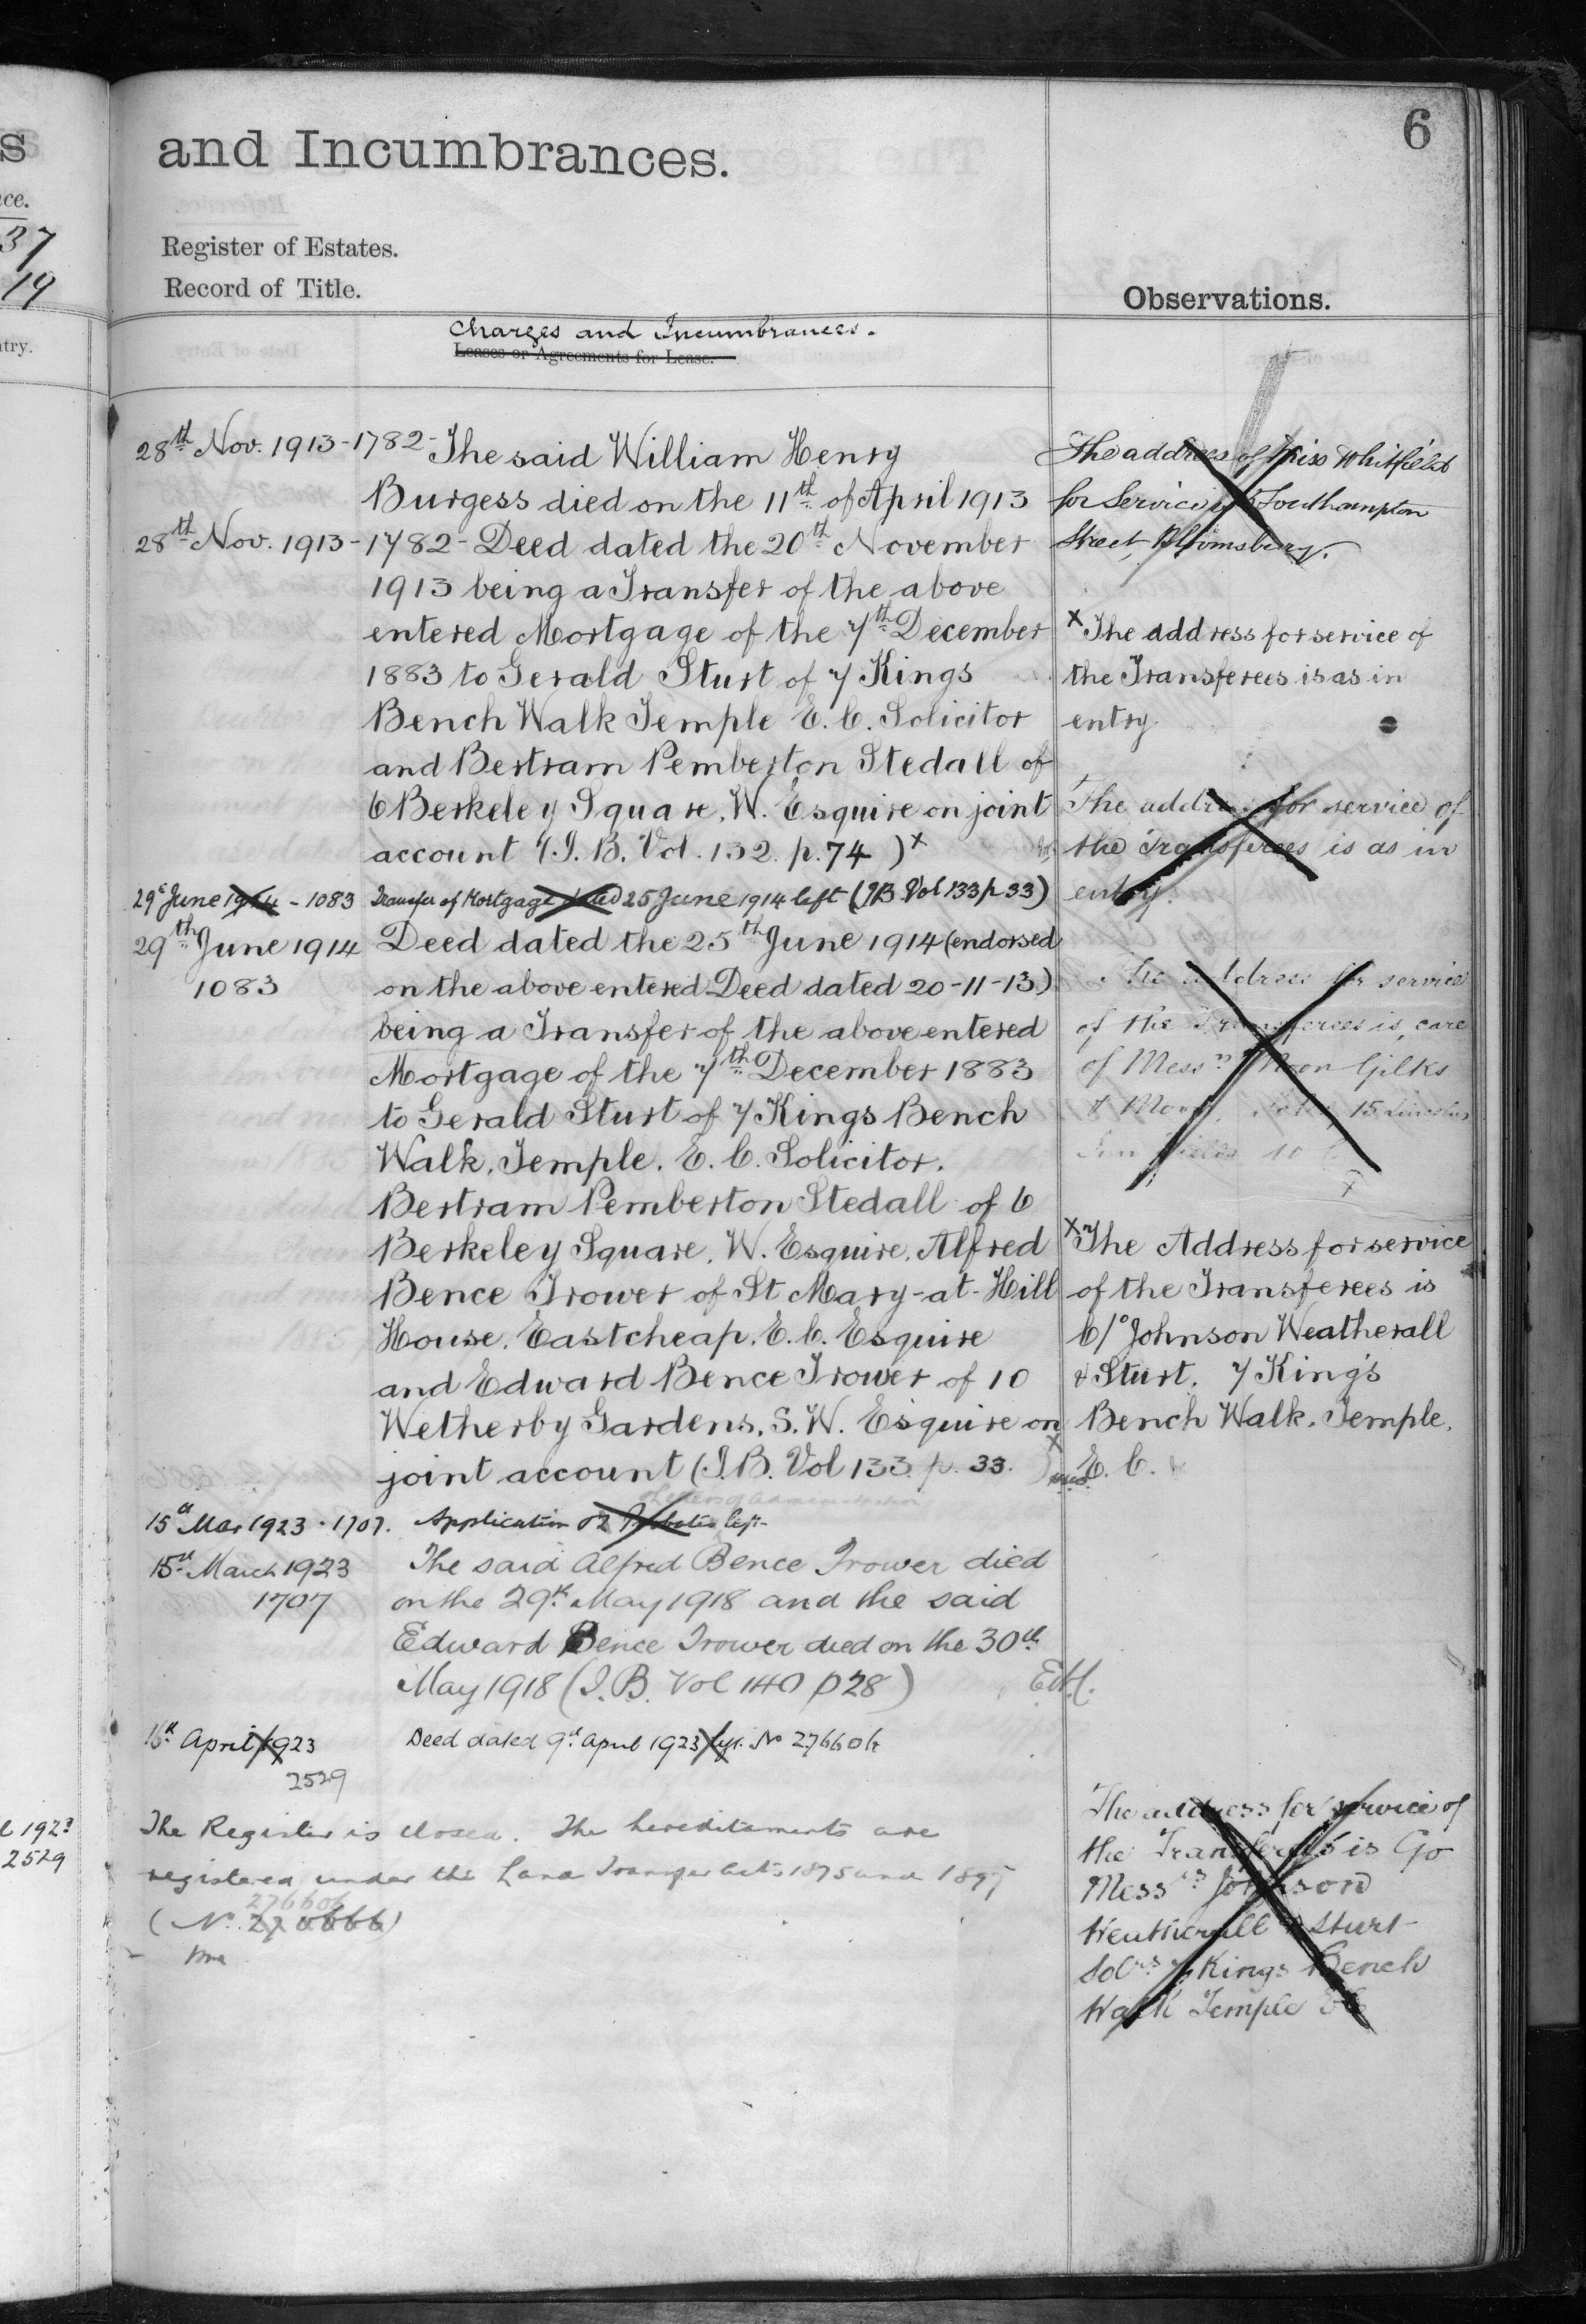 s
and Incumbrances.
6
ce.
37
19
Register of Estates.
Record of Title.
Observations.
try.
Charges and Incumbrances.
Leases or Agreements for Lease.
28th Nov. 1913 - 1782 - The said William Henry
Burgess died on the 11th of April 1913
28th Nov. 1913 - 1782 - Deed dated the 20th November
1913 being a Transfer of the above
entered Mortgage of the 7th December
1883 to Gerald Sturt of 7 Kings
Bench Walk Temple E.C. Solicitor
and Bertram Pemberton Stedall of
6 Berkeley Square, W. Esquire on joint
account (I.B. Vol. 132. p. 74 ) x
29th June 1914 - 1083 Transfer of Mortgage dated 25 June 1914 left (IB Vol 133 p 33)
29th June 1914 Deed dated the 25th June 1914 (endorsed
1083 on the above entered Deed dated 20-11-13)
being a Transfer of the above entered
Mortgage of the 7th December 1883
to Gerald Sturt of 7 Kings Bench
Walk, Temple, E.C. Solicitor,
Bertram Pemberton Stedall of 6
Berkeley Square, W. Esquire, Alfred
Bence Trower of St Mary-at-Hill
House, Eastcheap, E.C. Esquire
and Edward Bence Trower of 10
Wetherby Gardens, S.W. Esquire on
joint account (I.B. Vol 133. p. 33. ) x
Letters of Administration
15th Mar 1923 - 1707. Application of Probates left
15th March 1923 The said Alfred Bence Trower died
1707 on the 29th May 1918 and the said
Edward Bence Trower died on the 30th
May 1918 (I.B. Vol 140 p 28)
16th April 1923 Deed dated 9th April 1923 left. No 276606
2529
l 1923
2529
The Register is closed. The hereditaments are
registered under the Land Transfer Acts 1875 and 1897
276606
(No. 270666)
The address of Miss Whitfield
for service is Southampton
Street, Bloomsbury.
x The address for service of
the Transferees is as in
entry.
The address for service of
the Transferees is as in
entry.
The address for service
of the Transferees is, care
of Messrs Moon Gilks
& Moon, 15 Lincolns
Inn Fields
x
x The Address for service
of the Transferees is
C/o Johnson Weatherall
& Sturt, 7 King's
Bench Walk, Temple,
E.C.
The address for service of
the Transferees is C/o
Messrs Johnson
Weatherall & Sturt
Solrs 7 Kings Bench
Walk Temple EC